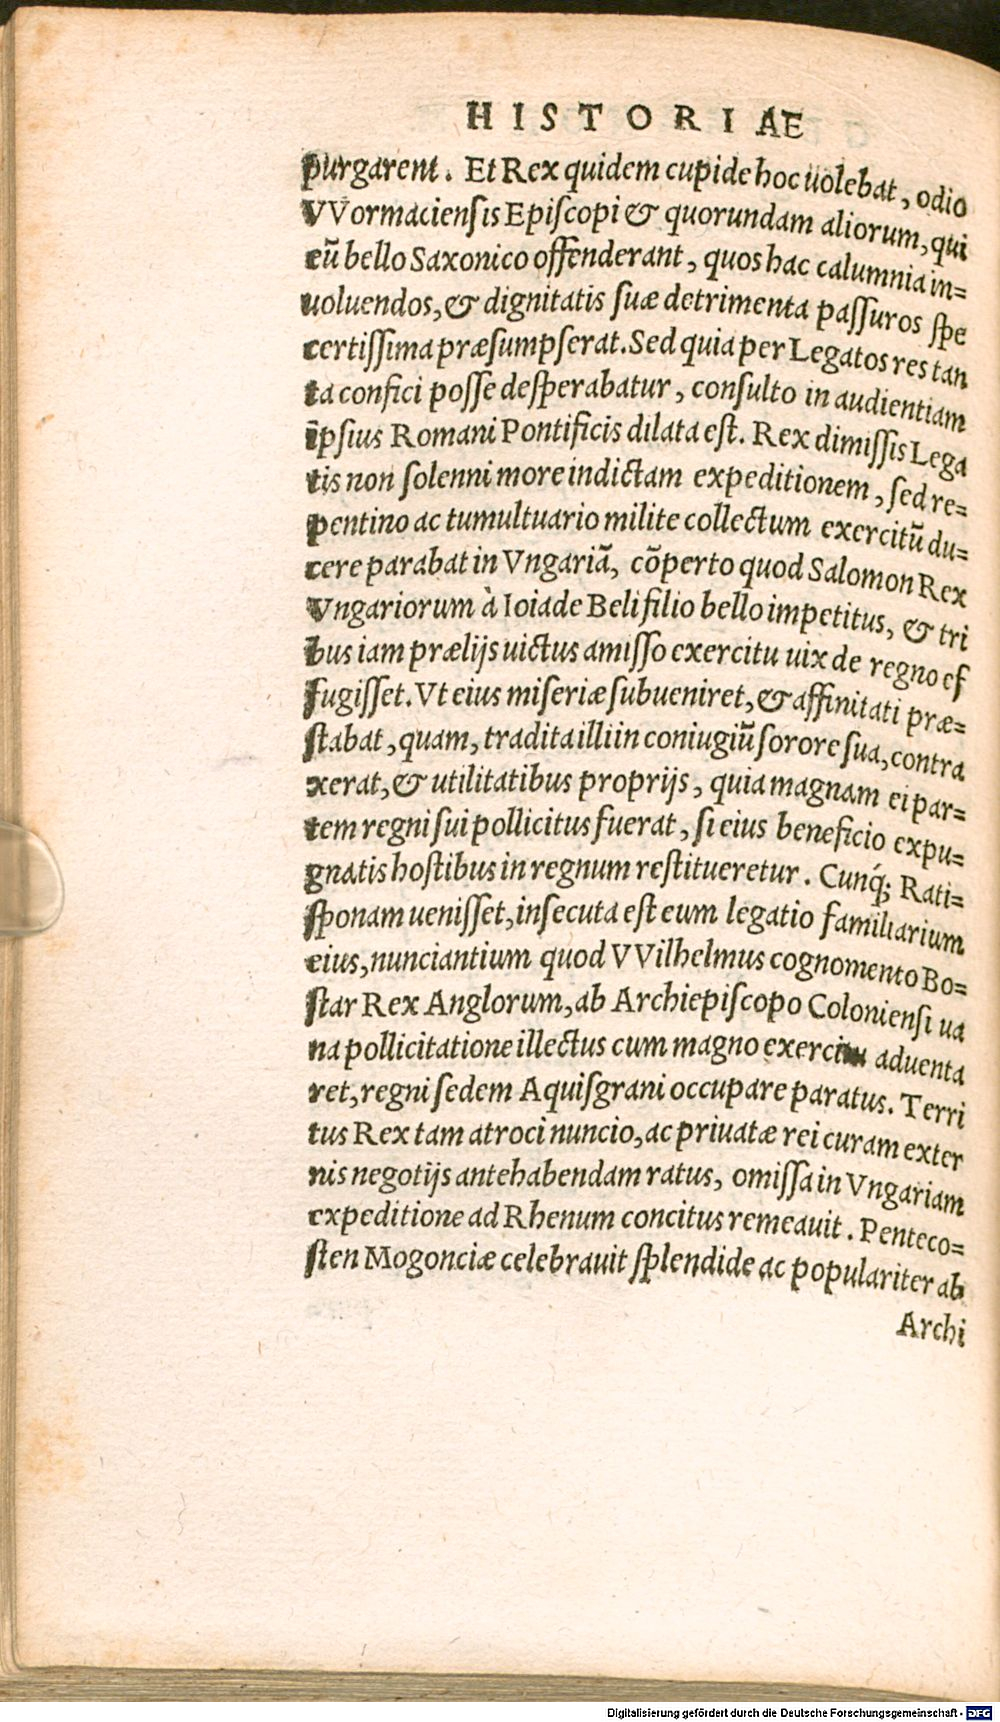 HISTORIAE
purgarent. Et Rex quidem cupide hoc uolebat, odio
VVormaciensis Episcopi & quorundam aliorum, qui
eũ bello Saxonico offenderant, quos hac calumnia in=
uoluendos, & dignitatis suæ detrimenta passuros spe
certissima præsumpserat. Sed quia per Legatos res tan
ta confici posse desperabatur, consulto in audientiam
ipsius Romani Pontificis dilata est. Rex dimissis Lega
tis non solenni more indictam expeditionem, sed re=
pentino ac tumultuario milite collectum exercitũ du=
cere parabat in Vngariã, cõperto quod Salomon Rex
Vngariorum à Ioiade Beli filio bello impetitus, & tri
bus iam prælijs uictus amisso exercitu uix de regno ef
fugisset. Vt eius miseriæ subueniret, & affinitati præ=
stabat, quam, tradita illi in coniugiũ sorore sua, contra
xerat, & utilitatibus proprijs, quia magnam ei par=
tem regni sui pollicitus fuerat, si eius beneficio expu=
gnatis hostibus in regnum restitueretur. Cunq́; Rati=
sponam uenisset, insecuta est eum legatio familiarium
eius, nunciantium quod VVilhelmus cognomento Bo=
star Rex Anglorum, ab Archiepiscopo Coloniensi ua
na pollicitatione illectus cum magno exercitu aduenta
ret, regni sedem Aquisgrani occupare paratus. Terri
tus Rex tam atroci nuncio, ac priuatæ rei curam exter
nis negotijs antehabendam ratus, omissa in Vngariam
expeditione ad Rhenum concitus remeauit. Penteco=
sten Mogonciæ celebrauit splendide ac populariter ab
Archi
Digitalisierung gefördert durch die Deutsche Forschungsgemeinschaft - DFG